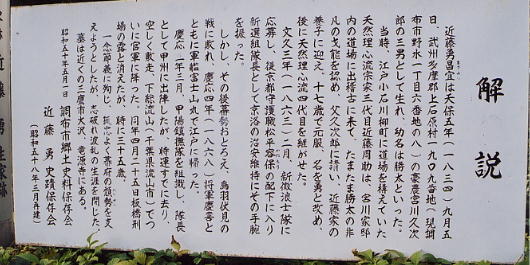 解説
近藤勇昌宜は天保五年(一八三四)九月五
日、武州多摩郡上石原村一九〇九番地(現調
布市野水一丁目六番地の八)の豪農宮川久次
郎の三男として生れ、幼名は勝太といった。
当時、江戸小石川柳町に道場を構えていた
天然理心流宗家三代目近藤周助は、宮川家邸
内の道場に出稽古に来て、たまたま勝太の非
凡の戈能を認め、父久次郎に請い、近藤家の
養子に迎え、十七歳で元服、名を勇と改め、
後に天然理心流四代目を継がせた。
文久三年(一八六三)二月、新徴浪士隊に
応募し、後京都守護職松平容保の配下に入り
新選組隊長として京洛の治安維持にその手腕
を振った。
しかし、その後幕府おとろえ、鳥羽伏見の
戦に敗れ、慶応四年(一八六八)将軍慶喜と
ともに軍艦富士山丸で江戸へ帰った。
慶応四年三月、甲陽鎮撫隊を組織し、隊長
として甲州に出陣したが、時運すでに去り、
空しく敗走、下総流山(千葉県流山市)でつ
いに官軍に降った。同年四月二十五日板橋刑
場の露と消えたが、時に三十五歳。
一念節義に殉じ、孤忠よく幕府の頽勢を支
えようとしたが、志破れ波乱の生涯を閉じた。
墓は近くの三鷹市大沢、竜源寺にある。
昭和五十年五月一日 調布市郷土史料保存会
近藤勇史蹟保存会
(昭和五十八年三月再建)